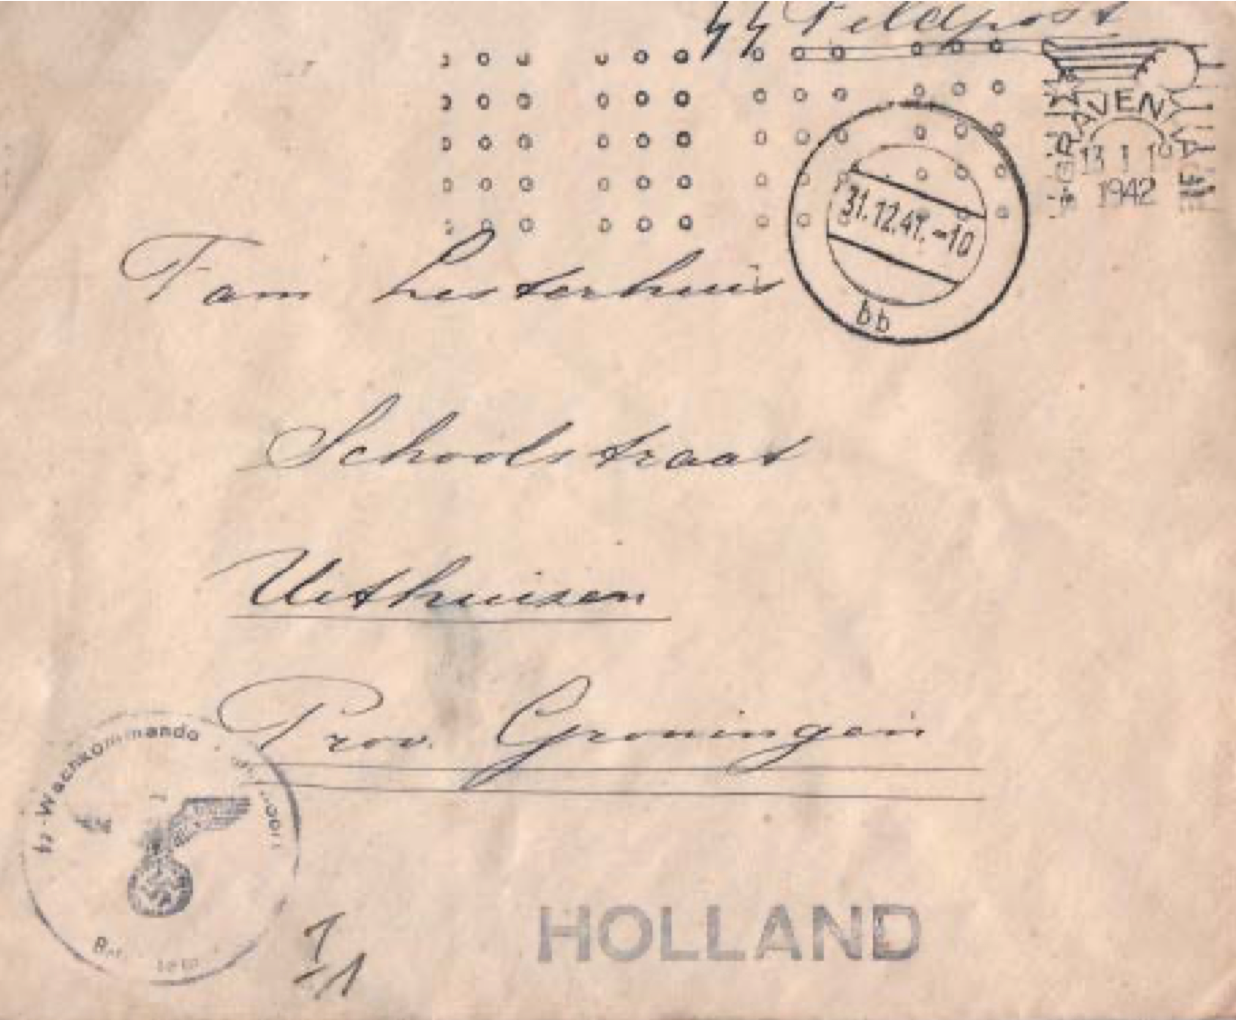 SS Feldpost
'S-GRAVENHA
13 1 19
1942
31.12.41.-10
bb
Fam Lesterhuis
Schoolstraat
Uithuizen
Prov. Groningen
SS-Wachkommando
HOLLAND